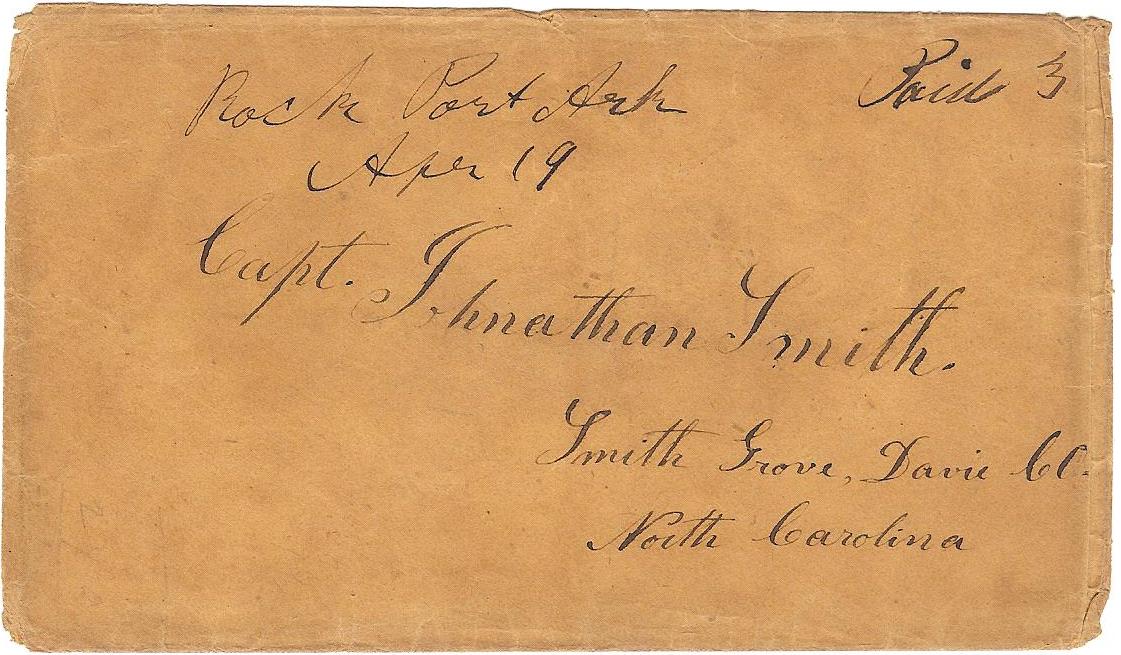 Rock Port Ark
Paid 3
Apr 19
Capt. Johnathan Smith.
Smith Grove, Davie Co.
North Carolina